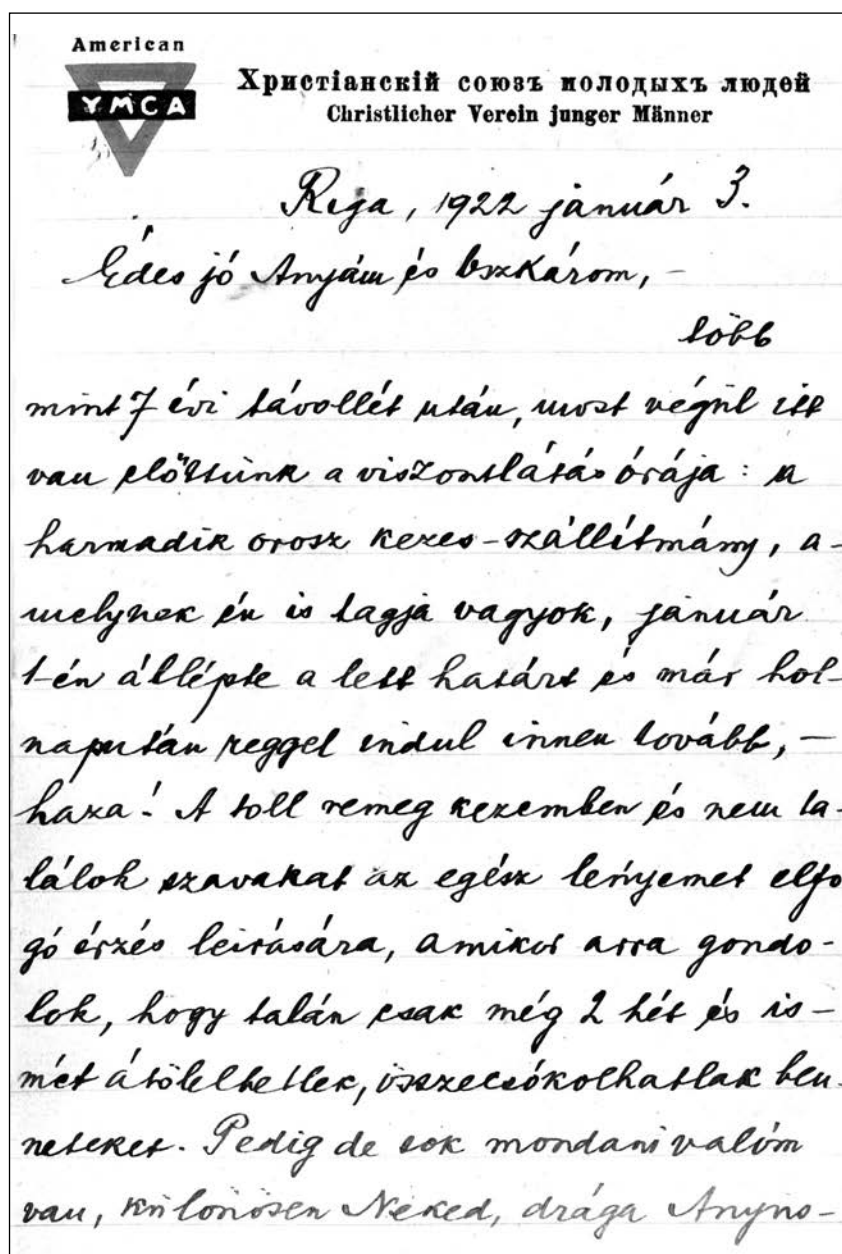 American
YMCA
Христіанскій союзъ молодыхъ людей
Christlicher Verein junger Männer
Riga, 1922 január 3.
Édes jó Anyám és Oszkárom, –
több
mint 7 évi távollét után, most végül itt
van előttünk a viszontlátás órája: a
harmadik orosz kezes-szállítmány, a-
melynek én is tagja vagyok, január
1-én átlépte a lett határt és már hol-
napután reggel indul innen tovább, –
haza! A toll remeg kezemben és nem ta-
lálok szavakat az egész lényemet elfo
gó érzés leirására, amikor arra gondo-
lok, hogy talán csak még 2 hét és is-
mét átölelhetlek, összecsókolhatlak ben-
neteket. Pedig de sok mondani valóm
van, különösen Neked, drága Anyus-